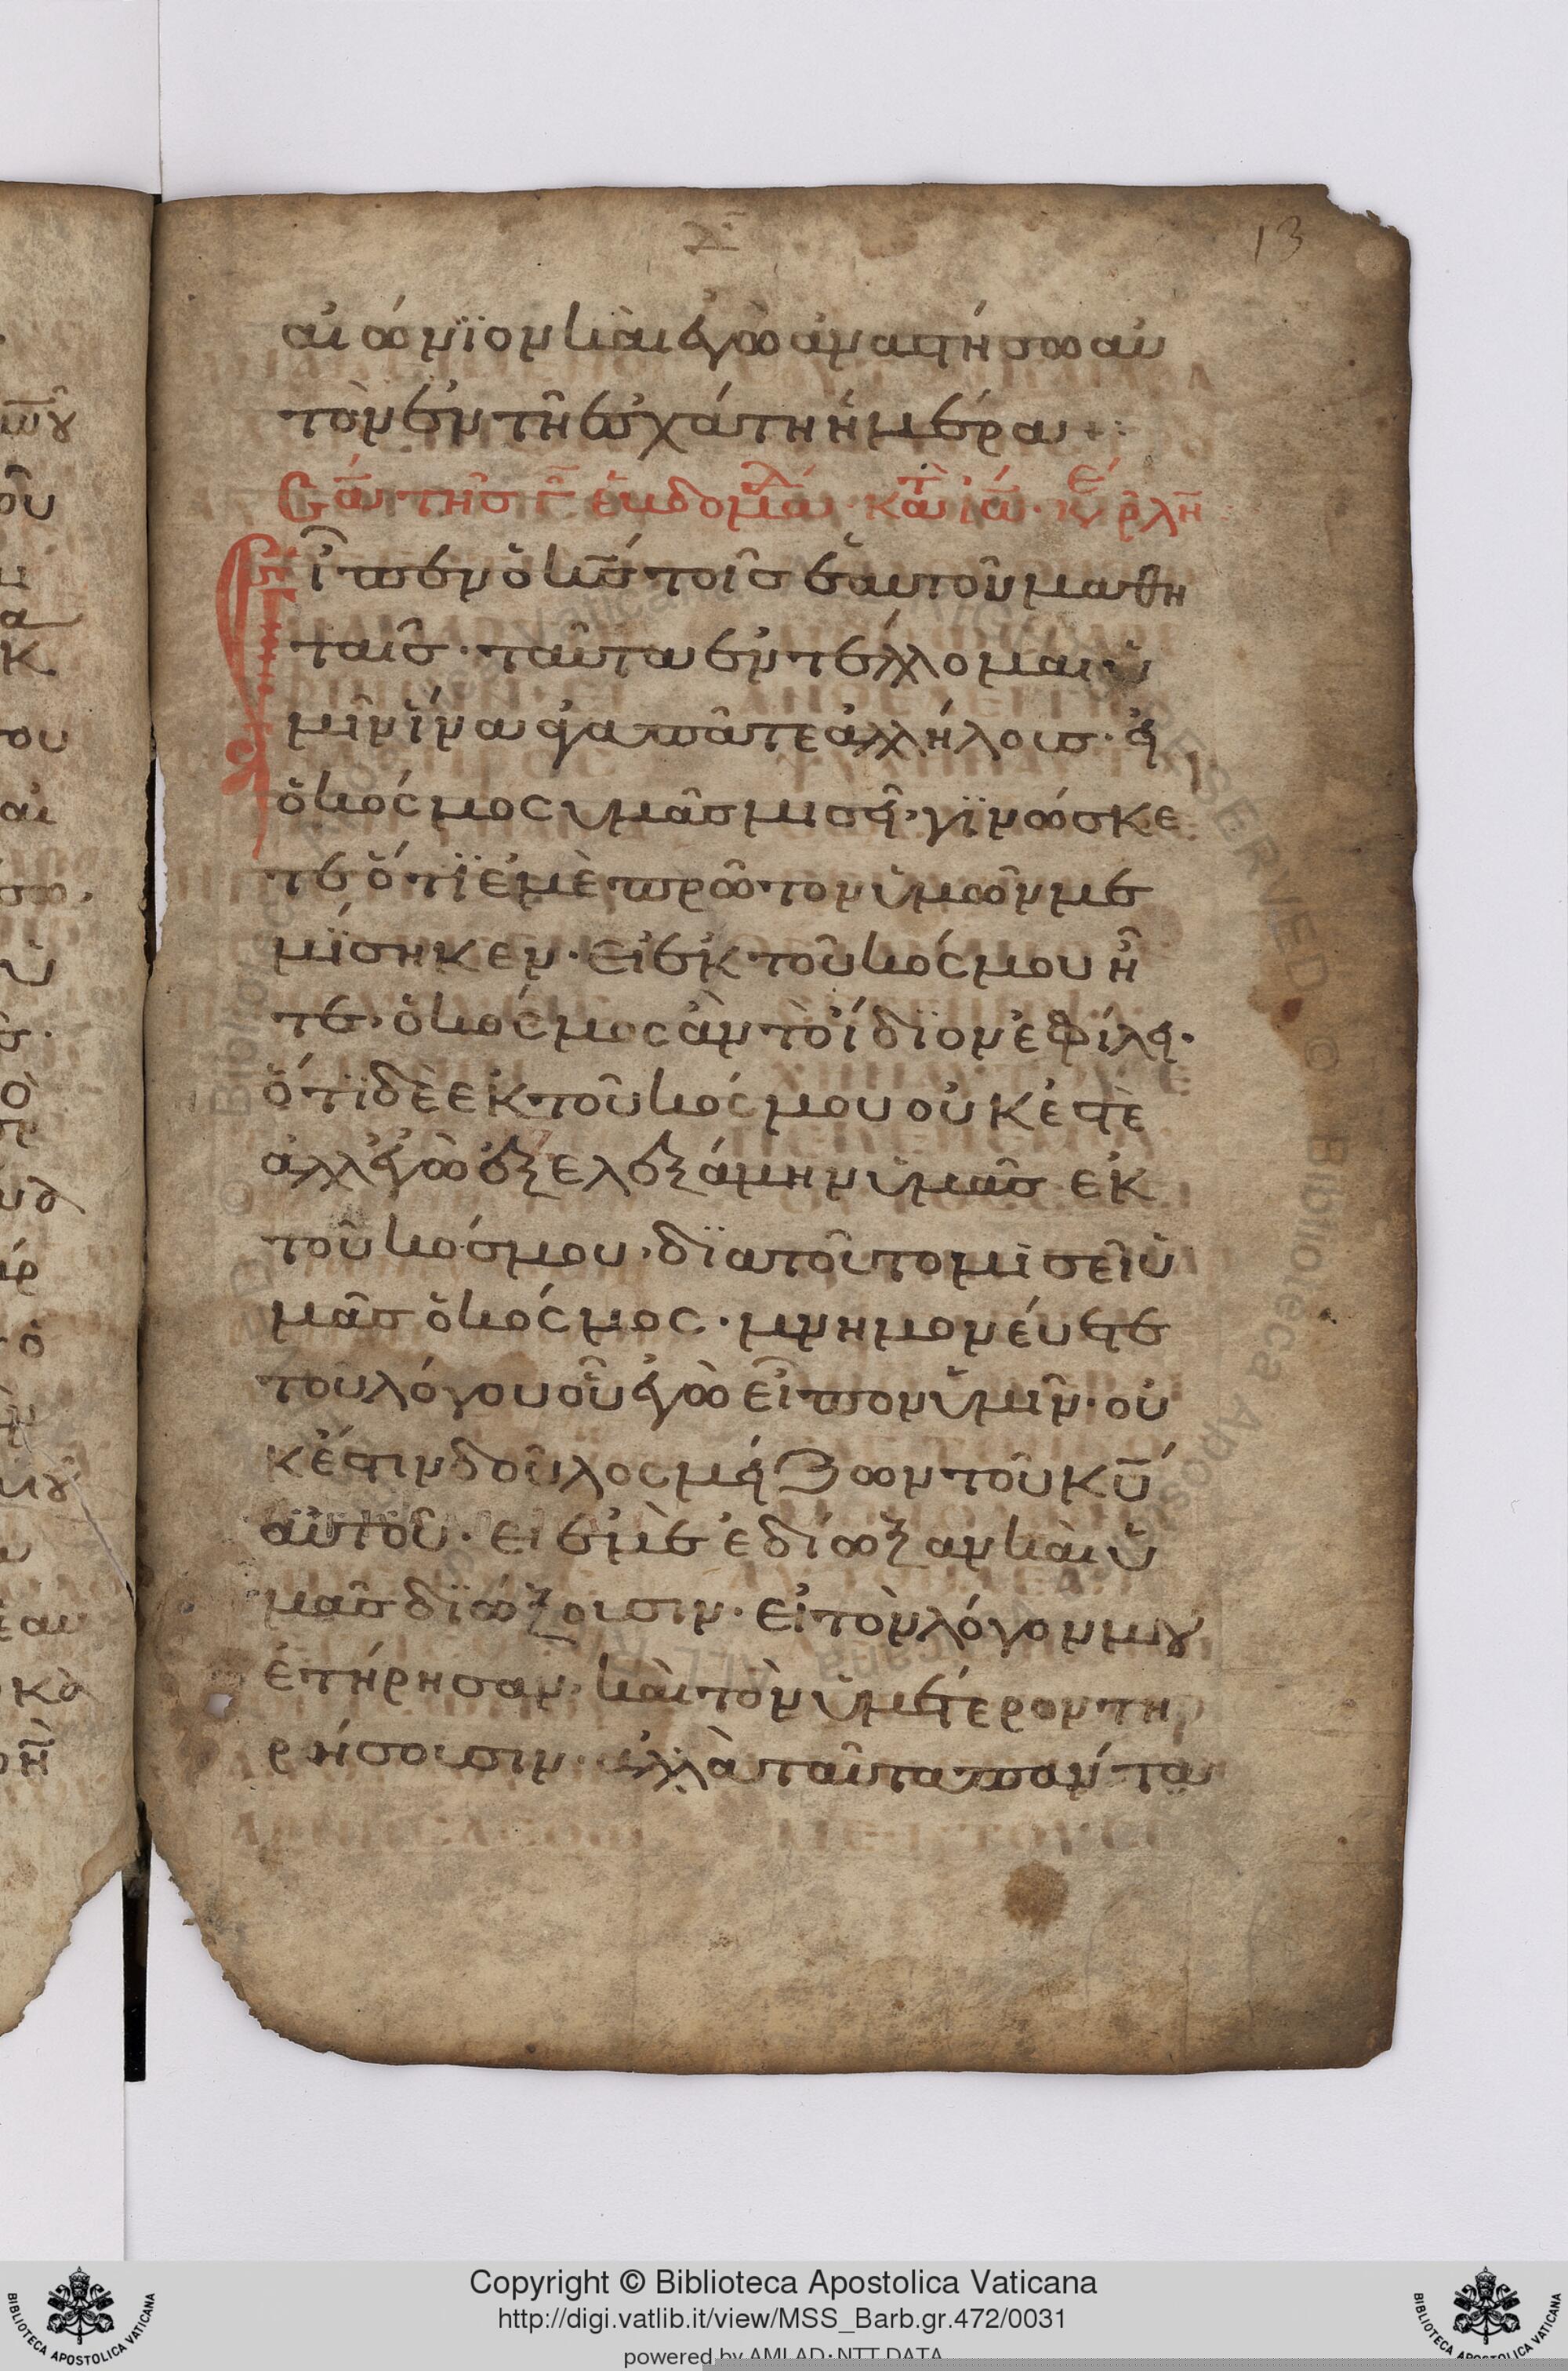 13
αἰώνϊον καὶ ἐγὼ ἀναστήσω αὐ
τὸν ἐν τῆ ἐσχάτη ἡμέρα +:
Εἶπεν ὁ κ̅ς̅ τοῖς ἑαυτοῦ μαθη
ταῖς· ταῦτα ἐντέλλομαι ὑ
μῖν ἵνα ἀγαπᾶτε ἀλλήλους· εἰ
ὁ κόσμος ὑμᾶς μισεῖ, γϊνώσκε
τε ὅτϊ ἐμὲ πρῶτον ὑμῶν με
μίσηκεν· εἰ ἐκ τοῦ κόσμου ἦ
τε, ὁ κόσμος ἂν τὸ ἴδϊον ἐφίλει·
ὅτϊ δὲ ἐκ τοῦ κόσμου οὐκ ἐστὲ
ἀλλ' ἐγὼ ἐξελεξάμην ὑμᾶς ἐκ
τοῦ κόσμου, δϊατοῦτο μισεῖ ὑ
μᾶς ὁ κόσμος· μνημονεύετε
τοῦ λόγου οὗ ἐγὼ εἶπον ὑμῖν· οὐ
κ ἔστιν δοῦλος μείζων τοῦ κ̅υ̅
αὐτοῦ· εἰ ἐμὲ ἐδίωξαν καὶ ὑ
μᾶς δϊώξουσιν· εἰ τὸν λόγον μου
ἐτήρησαν, καὶ τὸν ὑμέτερον τη
ρήσουσιν· ἀλλὰ ταῦτα πάντα
Copyright © Biblioteca Apostolica Vaticana
http://digi.vatlib.it/view/MSS_Barb.gr.472/0031
powered by AMLAD·NTT DATA